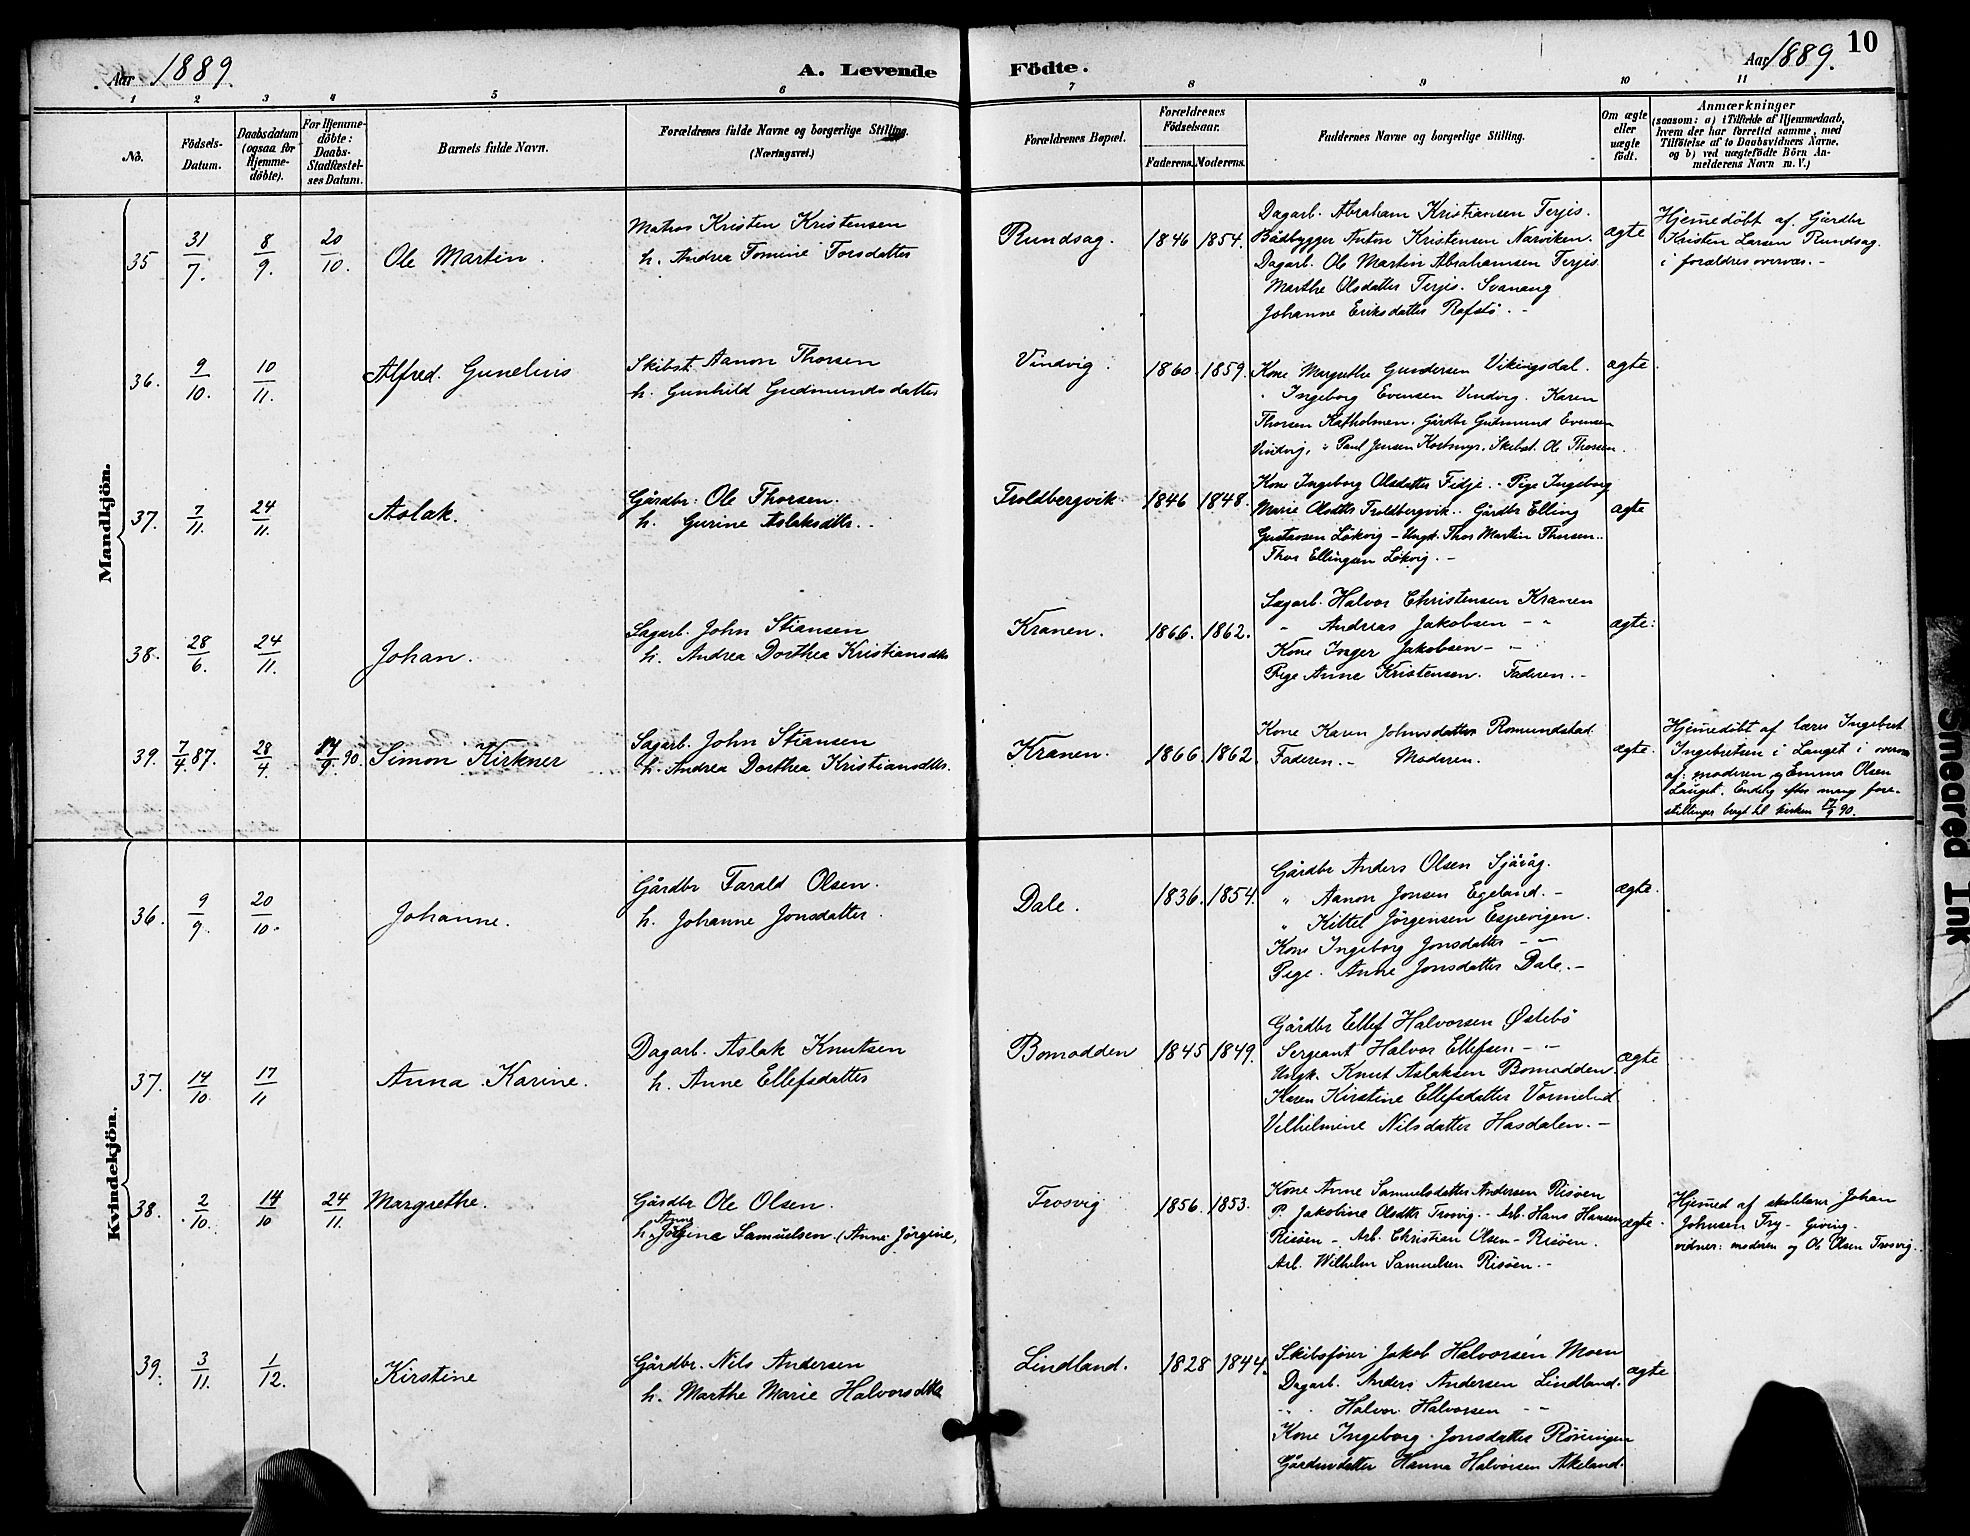 Aar 1889.
A. Levende
Födte.
Aar 1889.
10
1 2 3 4 5 6 7 8 9 10 11
No.
Födsels-
Datum.
Daabsdatum
(ogsaa for
Hjemme-
döbte).
For Hjemme-
döbte:
Daabs-
Stadfæstel-
ses Datum.
Barnets fulde Navn.
Forældrenes fulde Navne og borgerlige Stilling.
(Næringsvei.)
Forældrenes Bopæl.
Forældrenes
Födselsaar.
Faderens. Moderens.
Faddernes Navne og borgerlige Stilling.
Om ægte
eller
uægte
födt.
Anmærkninger
(saasom: a) i Tilfælde af Hjemmedaab,
hvem der har forrettet samme, med
Tilföielse af to Daabsvidners Navne,
og b) ved uægtefödte Börn An-
melderens Navn m. V.)
Mandkjön.
35 31/7. 8/9. 20/10. Ole Martin.
Matros Kristen Kristensen
h. Andrea Tomine Torsdatter
Rundsag. 1846 1854.
Dagarb. Abraham Kristiansen Terjis.
Bådbygger Anton Kristensen Narviken.
Dagarb. Ole Martin Abrahamsen Terjis.
Marthe Olsdatter Terjis. Svanaug
Johanne Eriksdatter Rafstö. -
ægte
Hjemedöbt af Gårdbr
Kristen Larsen Rundsag.
i forældres overvær. -
36. 9/10. 10/11. Alfred. Gunelius
Skibst. Aanon Thorsen
h. Gunhild Gudmundsdatter
Vindvig. 1860. 1859.
Kone Margrethe Gundersen Vikingsdal.
" Ingeborg Evensen Vindvig. Karen
Thorsen Katholmen. Gårdbr Gudmund Evensen
Vindvig, " Paul Jensen Kostmyr. Skibst. Ole Thorsen.
ægte.
37. 7/11. 24/11. Aslak.
Gårdbr. Ole Thorsen.
h. Gurine Aslaksdtr.
Troldbergvik. 1846 1848.
Kone Ingeborg Olsdatter Fidje. - Pige Ingeborg
Marie Olsdtr Troldbergvik. Gårdbr Elling
Gustavsen Lökvig - Ungk. Thor Martin Thorsen.
Thor Ellingsen Lökvig. -
ægte
38. 28/6. 24/11. Johan.
Sagarb. John Stiansen
h. Andrea Dorthea Kristiansdtr
Kranen. 1866. 1862.
Sagarb. Halvor Christensen Kranen
" Andreas Jakobsen - "
Kone Inger Jakobsen - -
Pige Anne Kristensen. Faderen. -
ægte.
39. 7/4 87. 28/4 17/9 90. Simon Kirkner
Sagarb. John Stiansen
h. Andrea Dorthea Kristiansdtr.
Kranen. 1866. 1862.
Kone Karen Johnsdatter Romundstad
Faderen. - Moderen.
ægte.
Hjemedöbt af lærer Ingebret
Ingebretsen i Lauget i overvær
af: moderen og Emma Olsen
Lauget. Endelig efter mang fore-
stillinger bragt til kirken 17/9 90.
Kvindekjön.
36. 9/9. 20/10. Johanne.
Gårdbr Tarald Olsen.
h. Johanne Jonsdatter.
Dale. 1836. 1854.
Gårdbr Anders Olsen Sjåvåg.
" Aanon Jonsen Egeland. -
" Kittel Jörgensen Espevigen.
Kone Ingeborg Jonsdatter - -
Pige. Anne Jonsdatter Dale. -
ægte.
37. 14/10. 17/11 Anna Karine.
Dagarb. Aslak Knutsen
h. Anne Ellefsdatter
Bomodden 1845 1849.
Gårdbr Ellef Halvorsen Østebö
Sergeant Halvor Ellefsen - -
Ungk. Knut Aslaksen Bomodden.
Karen Kirstine Ellefsdatter Vormelid.
Vilhelmine Nilsdatter Hasdalen. -
ægte
38. 2/10. 14/10 24/11. Margrethe.
Gårdbr Ole Olsen.
Anne
h. Jörgine Samuelsen. (Anne Jörgine,
Trosvig 1856. 1853.
Kone Anne Samuelsdatter Andersen Risöen
P. Jakobine Olsdtr Trosvig - Arb. Hans Hansen
Risöen - Arb. Christian Olsen - Risöen.
Arb. Wilhelm Samuelsen Risöen. -
ægte.
Hjemed af skolelærer Johan
Johnsen Fry - Giving.
vidner: moderen og Ole Olsen Trosvig.
39. 3/11. 1/12. Kirstine
Gårdbr. Nils Andersen
h. Marthe Marie Halvorsdtr
Lindland. 1828 1844.
Skibsförer Jakob Halvorsen Moen
Dagarb. Anders Andersen Lindland.
" Halvor Halvorsen - -
Kone Ingeborg Jonsdatter Röningen
Gårdmdatter Hanna Halvorsen Akeland.
ægte
Smeared Ink